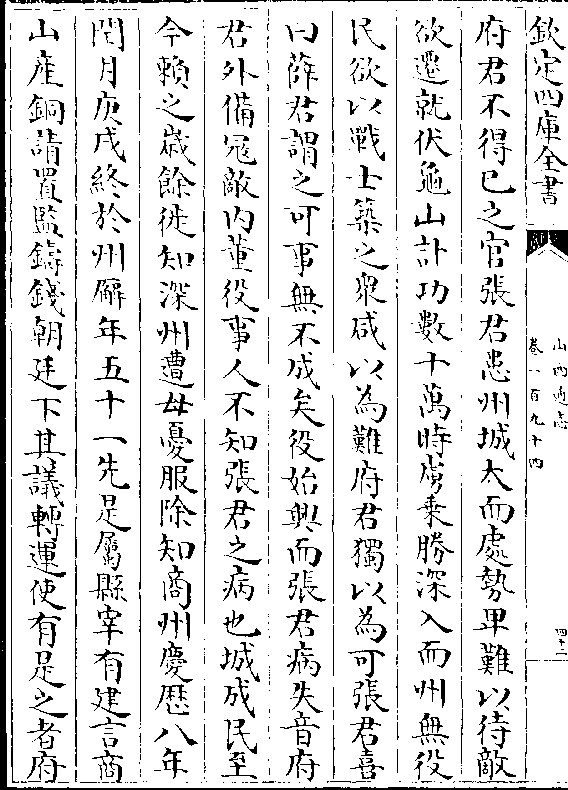 欽定四庫全書
山西通志
卷一百九十四
四十二
府君不得已之官張君患州城大而處勢卑難以待敵
欲遷就伏龜山計功數十萬時虜乗勝深入而州無役
民欲以戰士築之衆咸以為難府君獨以為可張君喜
曰薛君謂之可事無不成矣役始興而張君病失音府
君外備宼敵内董役事人不知張君之病也城成民至
今賴之嵗餘徙知深州遭母憂服除知商州慶厯八年
閏月庚戌終於州廨年五十一先是屬縣宰有建言商
山産銅請置監鑄錢朝廷下其議轉運使有是之者府